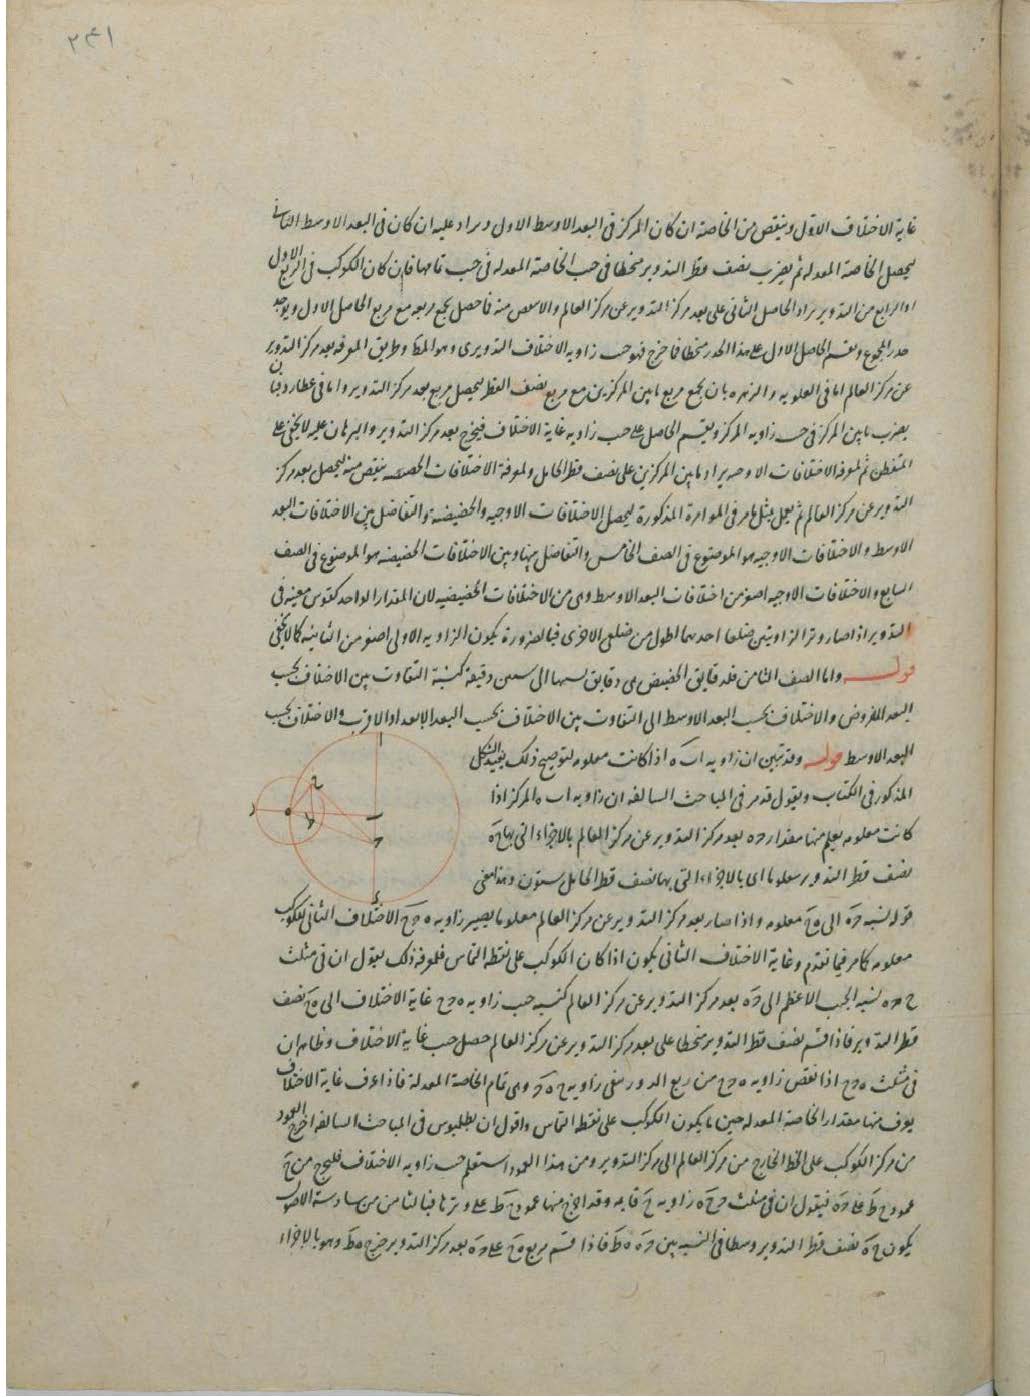 ٢٤١
غاية الاختلاف الاول وينقص من الخاصة ان كان المركز فى البعد الاوسط الاول ويزاد عليه ان كان فى البعد الاوسط الثانى
ليحصل الخاصة المعدله ثم يضرب نصف قطر التدوير منحطا فى جيب الخاصة المعدله فى جيب تمامها فان كان الكوكب فى الربع الاول
او الرابع من التدوير يزاد الحاصل الثانى على بعد مركز التدوير عن مركز العالم والا ينقص منه فما حصل يجمع مربعه مع مربع الحاصل الاول ويوخذ
جذر المجموع ويقسم الحاصل الاول على هذا الجذر منحطا فما خرج فهو جيب زاويه الاختلاف التدويرى وهو المط وطريق المعرفه بعد مركز التدوير
عن مركز العالم اما فى العلويه والزهره بان يجمع مربع ما بين المركزين مع مربع نصف القطر ليحصل مربع بعد مركز التدوير واما فى عطارد فبان
يضرب ما بين المركز فى جيب زاويه المركز ويقسم الحاصل على جيب زاويه غاية الاختلاف فيخرج بعد مركز التدوير والبرهان عليه لا يخفى على
المتفطن ثم لمعرفه الاختلافات الاوجيه يزاد ما بين المركزين على نصف قطر الحامل ولمعرفة الاختلافات الحضيضيه ينقص منه ليحصل بعد مركز
التدوير عن مركز العالم ثم يعمل بمثل ما مر فى الموامرة المذكورة ليحصل الاختلافات الاوجيه والحضيضيه والتفاضل بين الاختلافات البعد
الاوسط والاختلافات الاوجيه هو الموضوع فى الصف الخامس والتفاضل بينها وبين الاختلافات الحضيضيه هو الموضوع فى الصف
السابع والاختلافات الاوجيه اصغر من اختلافات البعد الاوسط وهى من الاختلافات الحضيضيه لان المقدار الواحد كقوس معينه فى
التدوير اذا صار وتر الزاويتين ضلعا احديهما اطول من ضلعى الاخرى فبالضرورة يكون الزاويه الاولى اصغر من الثانيه كما لا يخفى
قوله واما الصف الثامن فله دقايق الحضيض هى دقايق نسبها الى ستين دقيقة كنسبة التفاوت بين الاختلاف بحسب
البعد المفروض والاختلاف بحسب البعد الاوسط الى التفاوت بين الاختلاف بحسب البعد الابعد او الاقرب والاختلاف بحسب
البعد الاوسط قوله وقد تبين ان زاويه اب ه اذا كانت معلومه لتوضيح ذلك نعيد الشكل
المذكور فى الكتاب ونقول قد مر فى المباحث السالفه ان زاويه اب ه المركز اذا
كانت معلومه يعلم منها مقدار ح ه بعد مركز التدوير عن مركز العالم بالاجزاء التى بها ح ه
نصف قطر التدوير معلوما اى بالاجزاء التى بها نصف قطر الحامل ستون وهذا معنى
قوله نسبة ح ه الى ه ح معلومه واذا صار بعد مركز التدوير عن مركز العالم معلوما يصير زاويه ه ح ح الاختلاف الثانى للكوكب
معلومه كما مر فيما تقدم وغاية الاختلاف الثانى يكون اذا كان الكوكب على نقطه التماس فلمعرفة ذلك نقول ان فى مثلث
ح ح ه نسبه الجيب الاعظم الى ح ه بعد مركز التدوير عن مركز العالم كنسبه جيب زاويه ه ح ح غاية الاختلاف الى ه ح نصف
قطر التدوير فاذا قسم نصف قطر التدوير منحطا على بعد مركز التدوير عن مركز العالم حصل جيب غاية الاختلاف وظاهر ان
فى مثلث ه ح ح اذا نقص زاويه ه ح ح من ربع الدور بقى زاويه ح ه ح وهى تمام الخاصة المعدلة فاذا عرف غاية الاختلاف
يعرف منها مقدار الخاصة المعدله حين ما يكون الكوكب على نقطه التماس واقول ان بطلميوس فى المباحث السالفه اخرج العمود
من مركز الكوكب على الخط الخارج من مركز العالم الى مركز التدوير ومن هذا العمود استعلم جيب زاويه الاختلاف فليخرج من ح
عمود ح ط على ح ه فنقول ان فى مثلث ح ح ه زاويه ح قايمه وقد اخرج منها عمود ح ط على وترها فبالثامن من سادسة الاصول
يكون ح ه نصف قطر التدوير وسطا فى النسبه بين ح ه ه ط فاذا قسم مربع ه ح على ح ه بعد مركز التدوير خرج ه ط وهو بالاجزاء